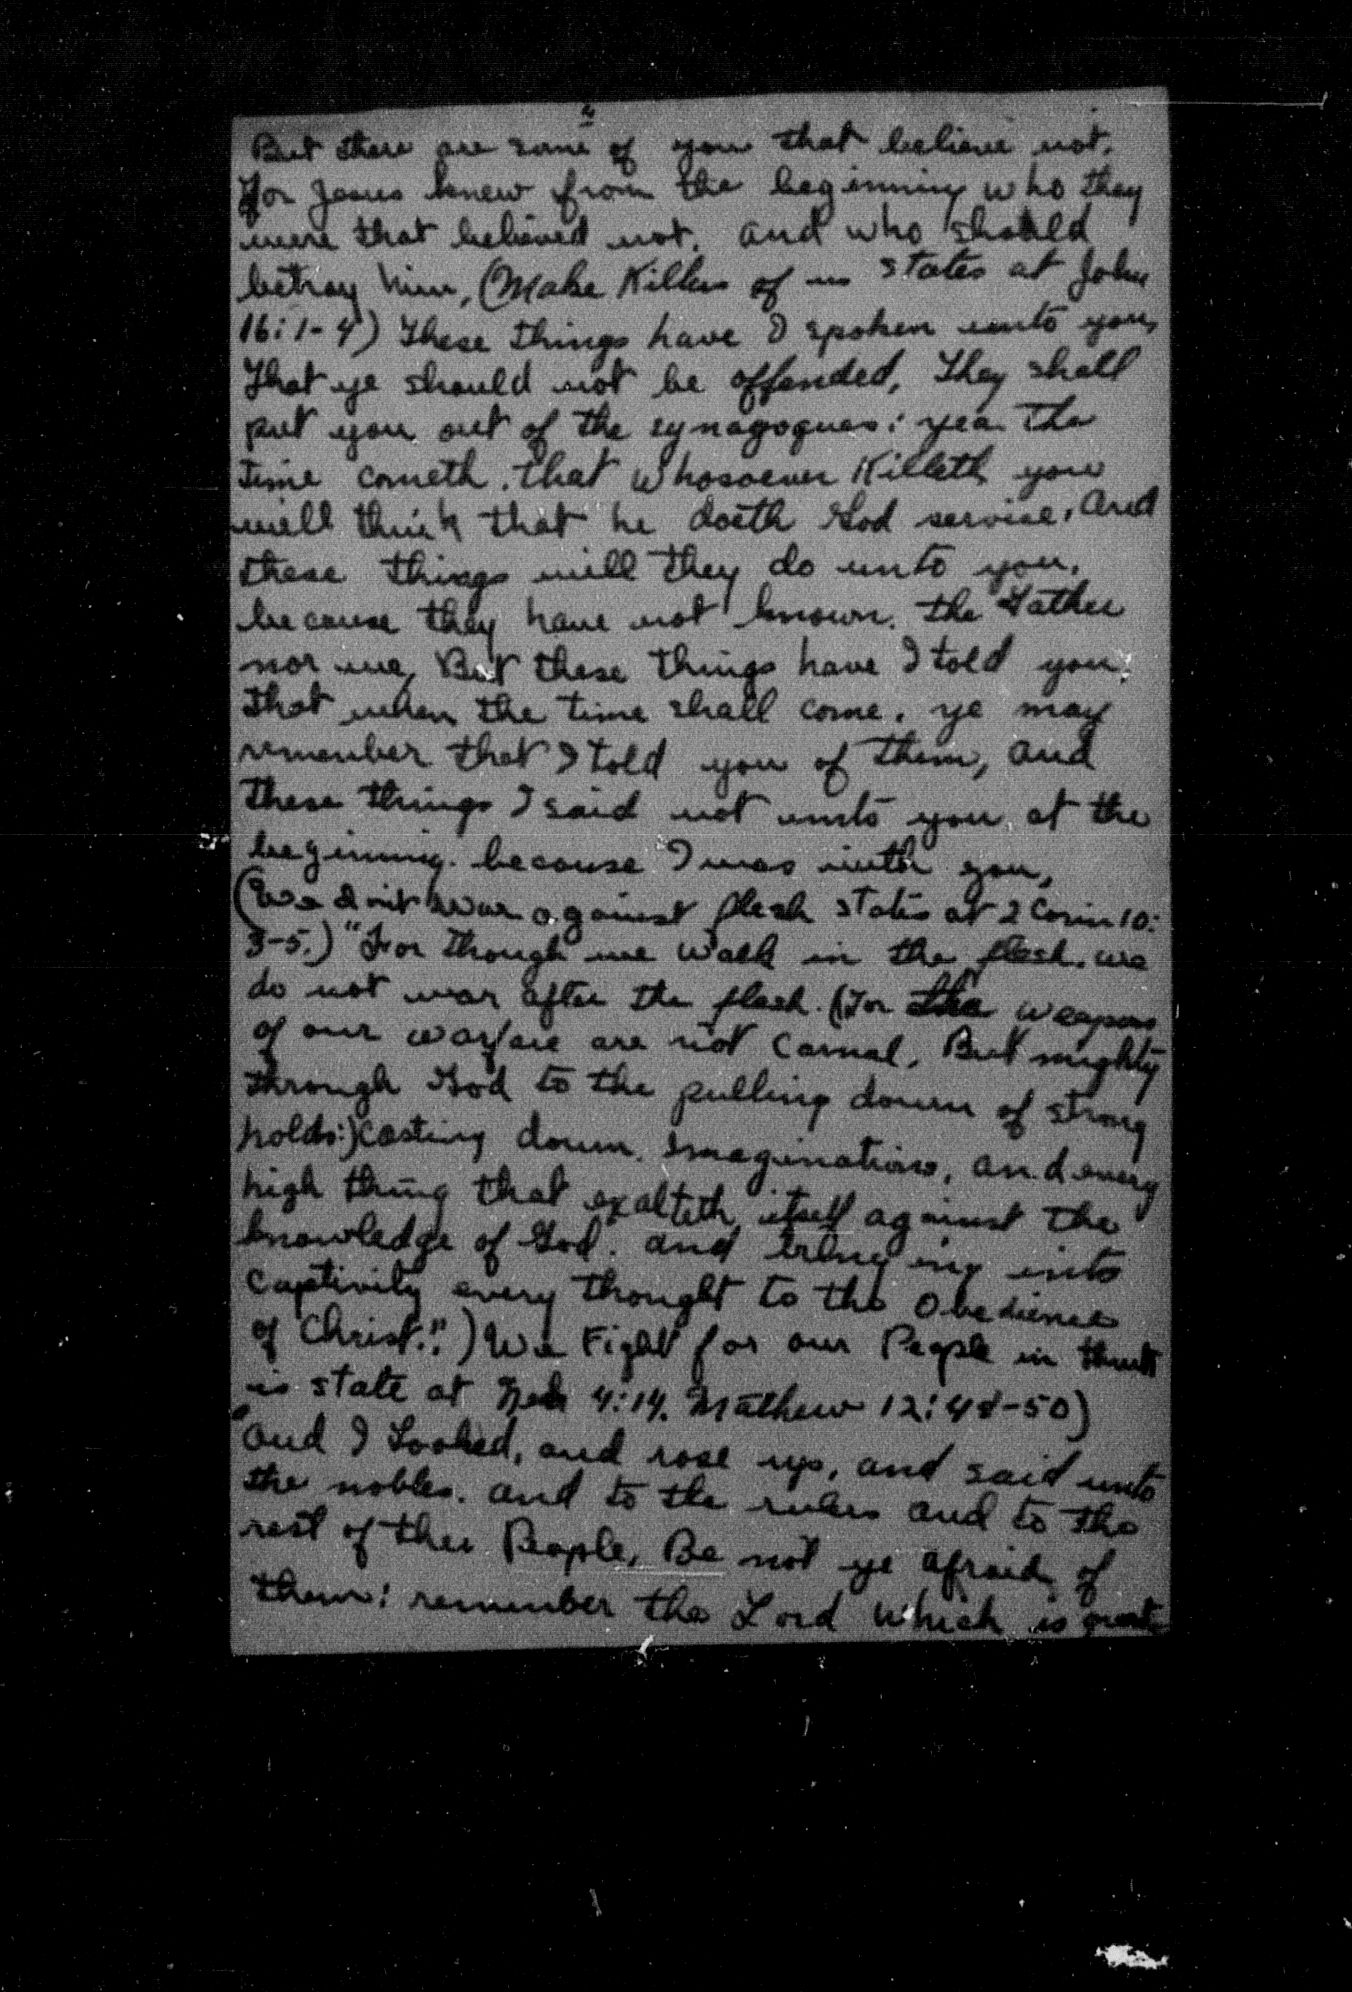 But there are some of you that believe not.
For Jesus knew from the beginning who they
were that believed not. and who should
betray him, (Make Killers of us states at John
16:1-4) These things have I spoken unto you,
That ye should not be offended, They shall
put you out of the synagogues: yea the
time cometh. that whosoever Killeth you
will think that he doeth God service. And
these things will they do unto you.
because they have not known. the Father
nor me, But these things have I told you.
that when the time shall come. ye may
remember that I told you of them, and
these things I said not unto you at the
beginning. because I was with you,
(We don't war against flesh states at 2 Corin 10:
3-5.) "For though we walk in the flesh. we
do not war after the flesh. (For the weapons
of our warfare are not carnal, But mighty
through God to the pulling down of strong
holds:) casting down. Imaginations, and every
high thing that exalteth itself against the
knowledge of God. and bringing into
captivity every thought to the Obedience
of Christ.".) We Fight for our People in
is state at Neh 4:14. Mathew 12:48-50)
"And I Looked, and rose up, and said unto
the nobles. and to the rulers and to the
rest of the People, Be not ye afraid of
them: remember the Lord which is great